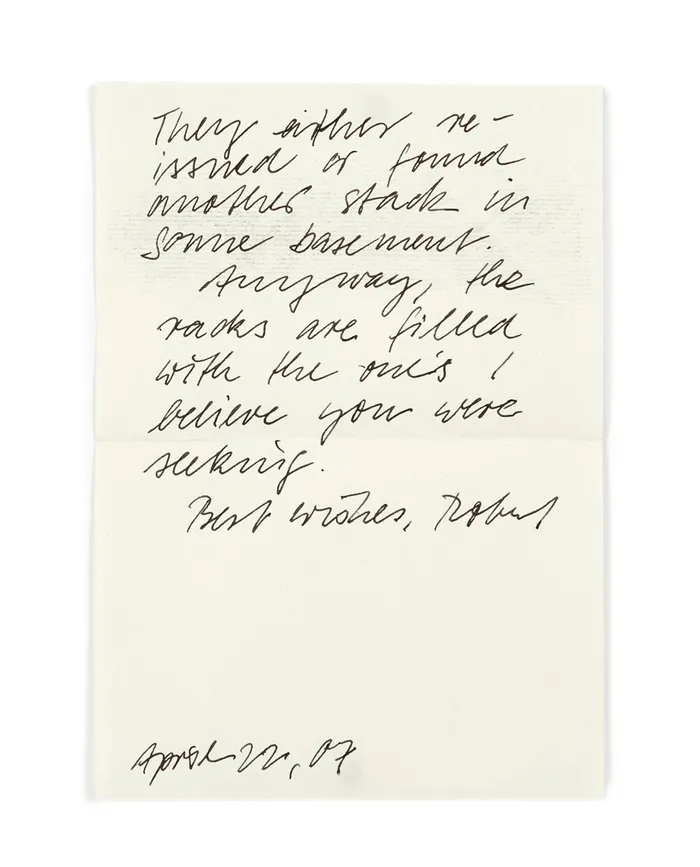 They either re-
issued or found
another stack in
some basement.
Anyway, the
racks are filled
with the one's I
believe you were
seeking.
Best wishes, Robert
April 22, 07